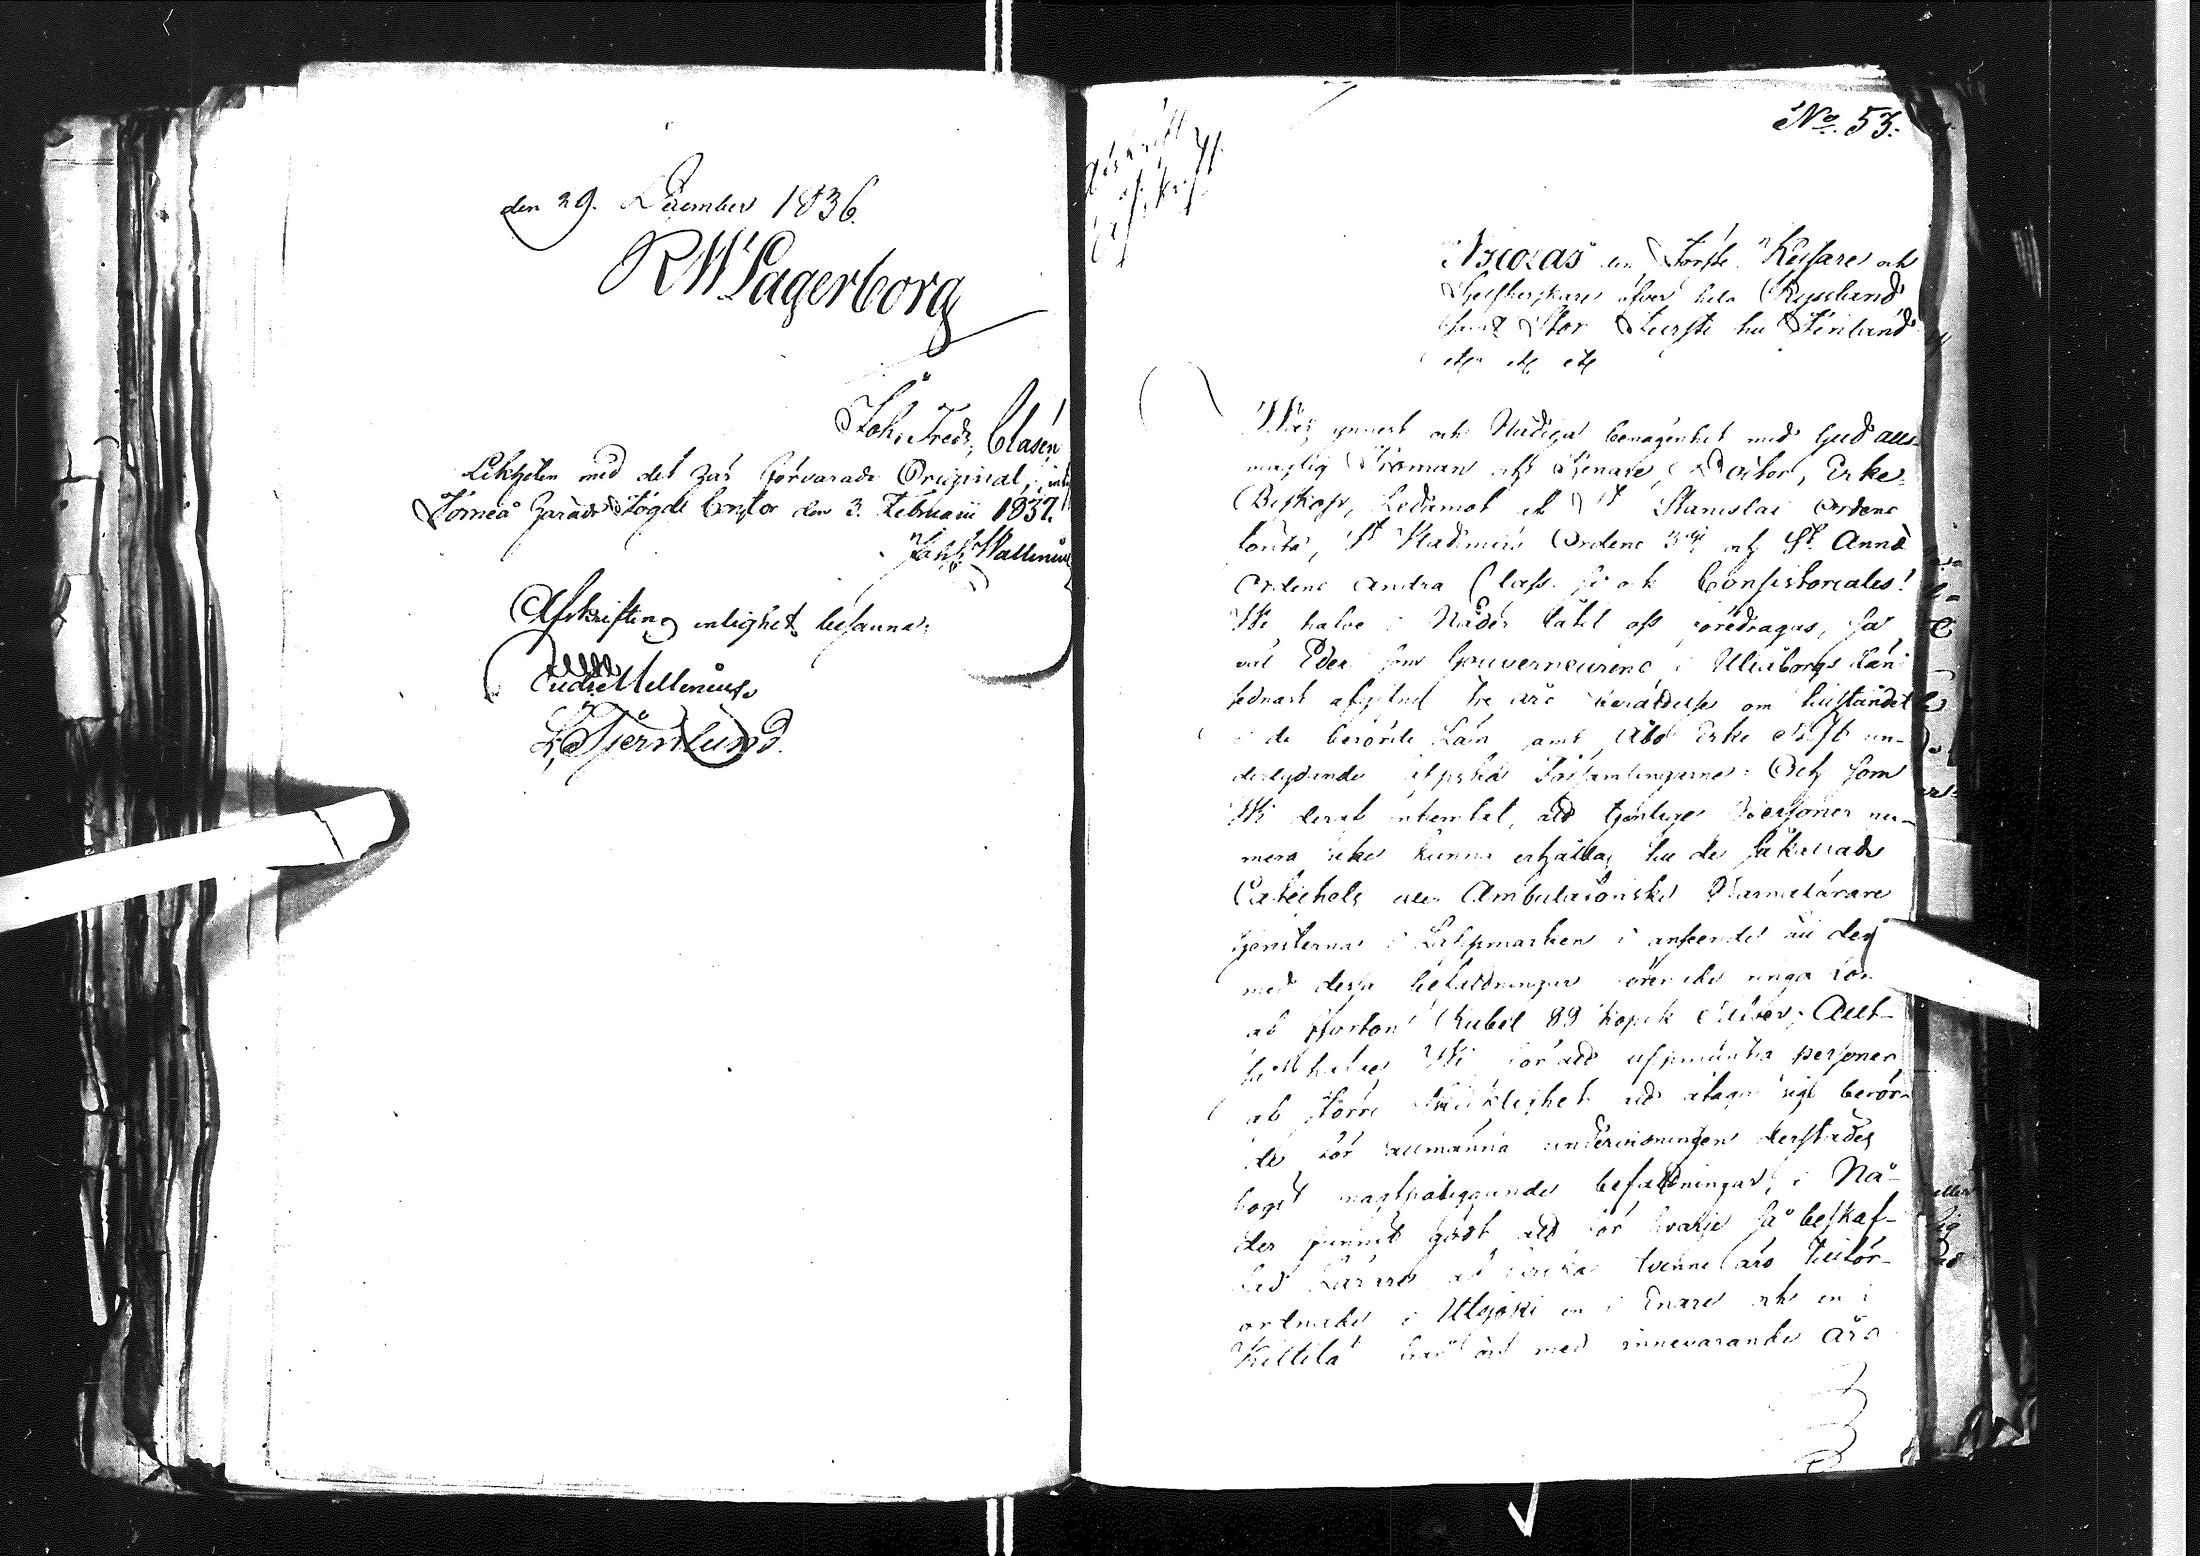 den 29. December 1836.
R W Lagerborg
Joh. Fredr. Clasén
Likheten med det här förvarade Original,
Torneå Härads Fögde Contor den 3. Februarii 1837.
Wallenius
Afskriftens enlighet besanna:
Mellenius
Stjernlund.
No. 53.
Nicolas den Förste Kejsare och
Sjelfherskare öfver hela Ryssland
samt Stor Furste till Finland
etc etc etc
Wår ynnest och Nådiga benägenhet med Gud alls-
mägtig Troman och Tjenare, Doctor, Erke
Biskop, Ledamot af St Stanislai Ordens
första, St Wladimirs Ordens 3dje och St. Annæ
Ordens andra Class så ock Consistoriales!
Wi hafve i Nåder låtit oss föredragas, så
väl Eder som Gouverneurens i Uleåborgs Län
sednast afgifna tre års berättelse om tillståndet
i de berörde Län samt Åbo Erke Stift un-
derlydande Lappska Församlingarne: Och som
Wi deraf inhemtat, att tjenlige Personer nu-
mera icke kunna erhållas till de så kallade
Catechets eller Ambulatoriska Barnalärare
tjensterna i Lappmarken i anseende till den
med dessa befattningar förenade ringa lön
af sjutton Rubel 89 Kopek Silfver; Allt-
så hafve Wi för att uppmuntra personer
af större skicklighet att åtaga sig berör-
de för allmänna undervisningen derstädes
högst magtpåliggande befattningar, i Nå-
der funnit godt att för hvarje så beskaf-
fad Lärare af hvilka tvenne äro tillför-
ordnade i Utsjoki en i Enare och en i
Kittilä från och med innevarande års